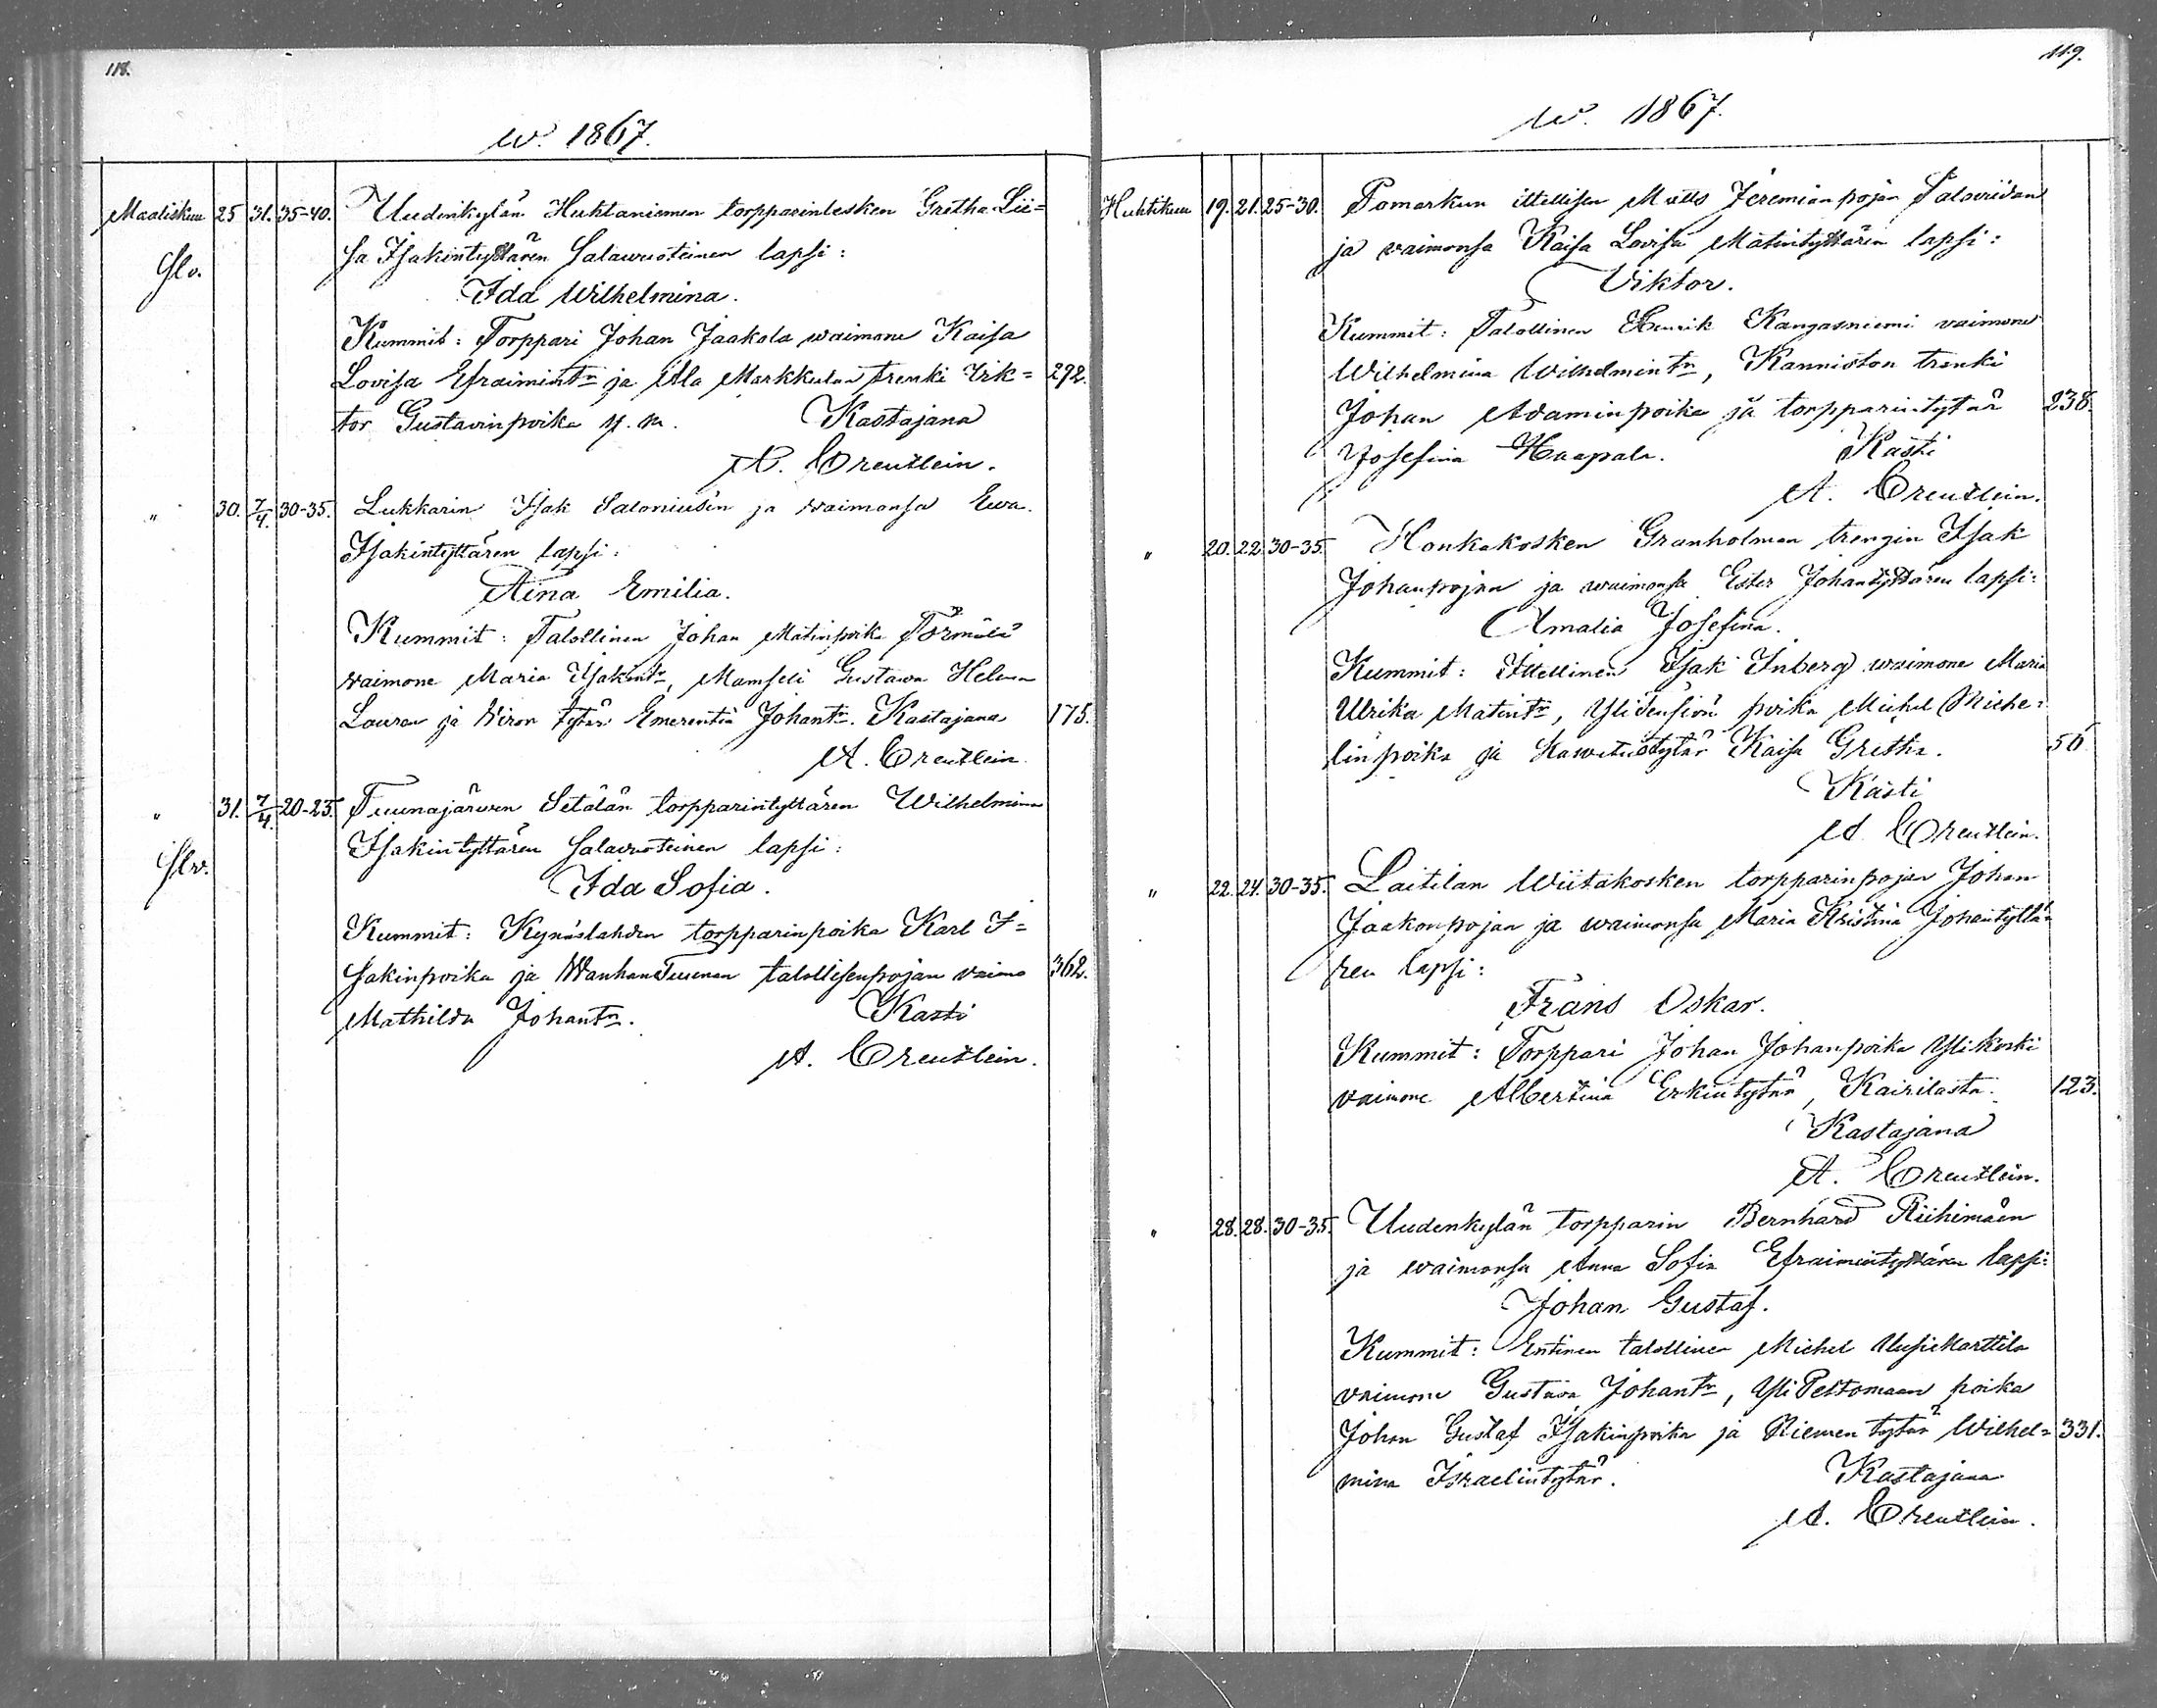 118.
w. 1867.
Maaliskuu 25 31. 35-40. Uudenkylän Huhtaniemen torpparinlesken Gretha Lii=
Slv. sa Isakintyttären Salawuoteinen lapsi:
Ida Wilhelmina.
Kummit: Torppari Johan Jaakola waimone Kaisa
Lovisa Efraimintr ja Ala Markkulan trenki Vik= 292.
tor Gustavinpoika y. m. Kastajana
A. Creutlein.
" 30. 7/4. 30-35. Lukkarin Isak Saloniusen ja waimonsa Ewa
Isakintyttären lapsi:
Aina Emilia.
Kummit: Talollinen Johan Matinpoika Törmälä
waimone Maria Isakintr, Mamseli Gustawa Helena
Lauren ja Niron tytär Emerentia Johantr. Kastajana 175.
A. Creutlein.
" 31. 7/4. 20-25. Tuunajärwen Setälän torpparintyttären Wilhelmina
Slv. Isakintyttären Salawuoteinen lapsi:
Ida Sofia.
Kummit: Kynäslahden torpparinpoika Karl I=
sakinpoika ja WanhanTuunan talollisenpojan vaimo 362.
Mathilda Johantr. Kasti
A. Creutlein.
119.
w. 1867.
Huhtikuu 19. 21. 25-30. Pomarkun ittellisen Matts Jeremianpojan Palowiidan
ja vaimonsa Kaisa Lovisa Matintyttären lapsi:
Viktor.
Kummit: Talollinen Henrik Kangasniemi vaimone
Wilhelmina Wilhelmintr, Kanniston trenki
Johan Adaminpoika ja torpparintytär 238.
Josefina Haapala. Kasti
A. Creutlein.
" 20. 22. 30-35. Honkakosken Granholman trengin Isak
Johanpojan ja waimonsa Ester Johantyttären lapsi:
Amalia Josefina.
Kummit: Ittellinen Isak Inberg waimone Maria
Ulrika Matintr, poika Michel Miche=
linpoika ja Kaisa Gretha. 56.
Kasti
A. Creutlein.
" 22. 24. 30-35. Laitilan Wiitakosken torpparinpojan Johan
Jaakonpojan ja waimonsa Maria Kristina Johantyttä=
ren lapsi:
Frans Oskar.
Kummit: Torppari Johan Johanpoika Ylikoski
vaimone Albertina Erkintytär, Kairilasta. 123.
Kastajana
A. Creutlein.
" 28. 28. 30-35. Uudenkylän torpparin Bernhard Riihimäen
ja waimonsa Anna Sofia Efraimintyttären lapsi:
Johan Gustaf.
Kummit: Entinen talollinen Michel UusiMarttila
vaimone Gustava Johantr, Yli Peltomaan poika
Johan Gustaf Isakinpoika ja Niemen tytär Wilhel= 331.
mina Israelintytär. Kastajana
A. Creutlein.